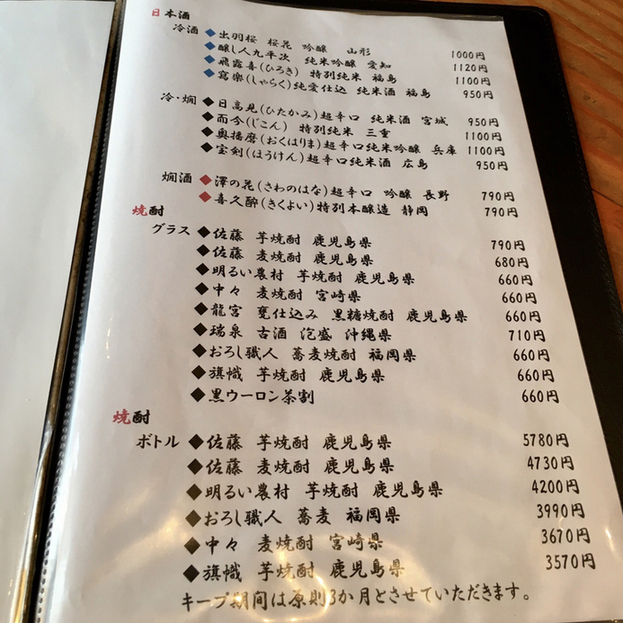 日本酒
冷酒 ◆出羽桜 桜花 吟醸 山形 1000円
◆醸し人九平次 純米吟醸 愛知 1120円
◆飛露喜(ひろき) 特別純米 福島 1100円
◆寫樂(しゃらく)純愛仕込 純米酒 福島 950円
冷・燗 ◆日高見(ひたかみ)超辛口 純米酒 宮城 950円
◆而今(じこん) 特別純米 三重 1100円
◆奥播磨(おくはりま)超辛口純米吟醸 兵庫 1100円
◆宝剣(ほうけん)超辛口純米酒 広島 950円
燗酒 ◆澤の花(さわのはな)超辛口 吟醸 長野 790円
◆喜久酔(きくよい)特別本醸造 静岡 790円
焼酎
グラス ◆佐藤 芋焼酎 鹿児島県 790円
◆佐藤 麦焼酎 鹿児島県 680円
◆明るい農村 芋焼酎 鹿児島県 660円
◆中々 麦焼酎 宮崎県 660円
◆龍宮 甕仕込み 黒糖焼酎 鹿児島県 660円
◆瑞泉 古酒 泡盛 沖縄県 710円
◆おろし職人 蕎麦焼酎 福岡県 660円
◆旗幟 芋焼酎 鹿児島県 660円
◆黒ウーロン茶割 660円
焼酎
ボトル ◆佐藤 芋焼酎 鹿児島県 5780円
◆佐藤 麦焼酎 鹿児島県 4730円
◆明るい農村 芋焼酎 鹿児島県 4200円
◆おろし職人 蕎麦 福岡県 3990円
◆中々 麦焼酎 宮崎県 3670円
◆旗幟 芋焼酎 鹿児島県 3570円
キープ期間は原則3か月とさせていただきます。